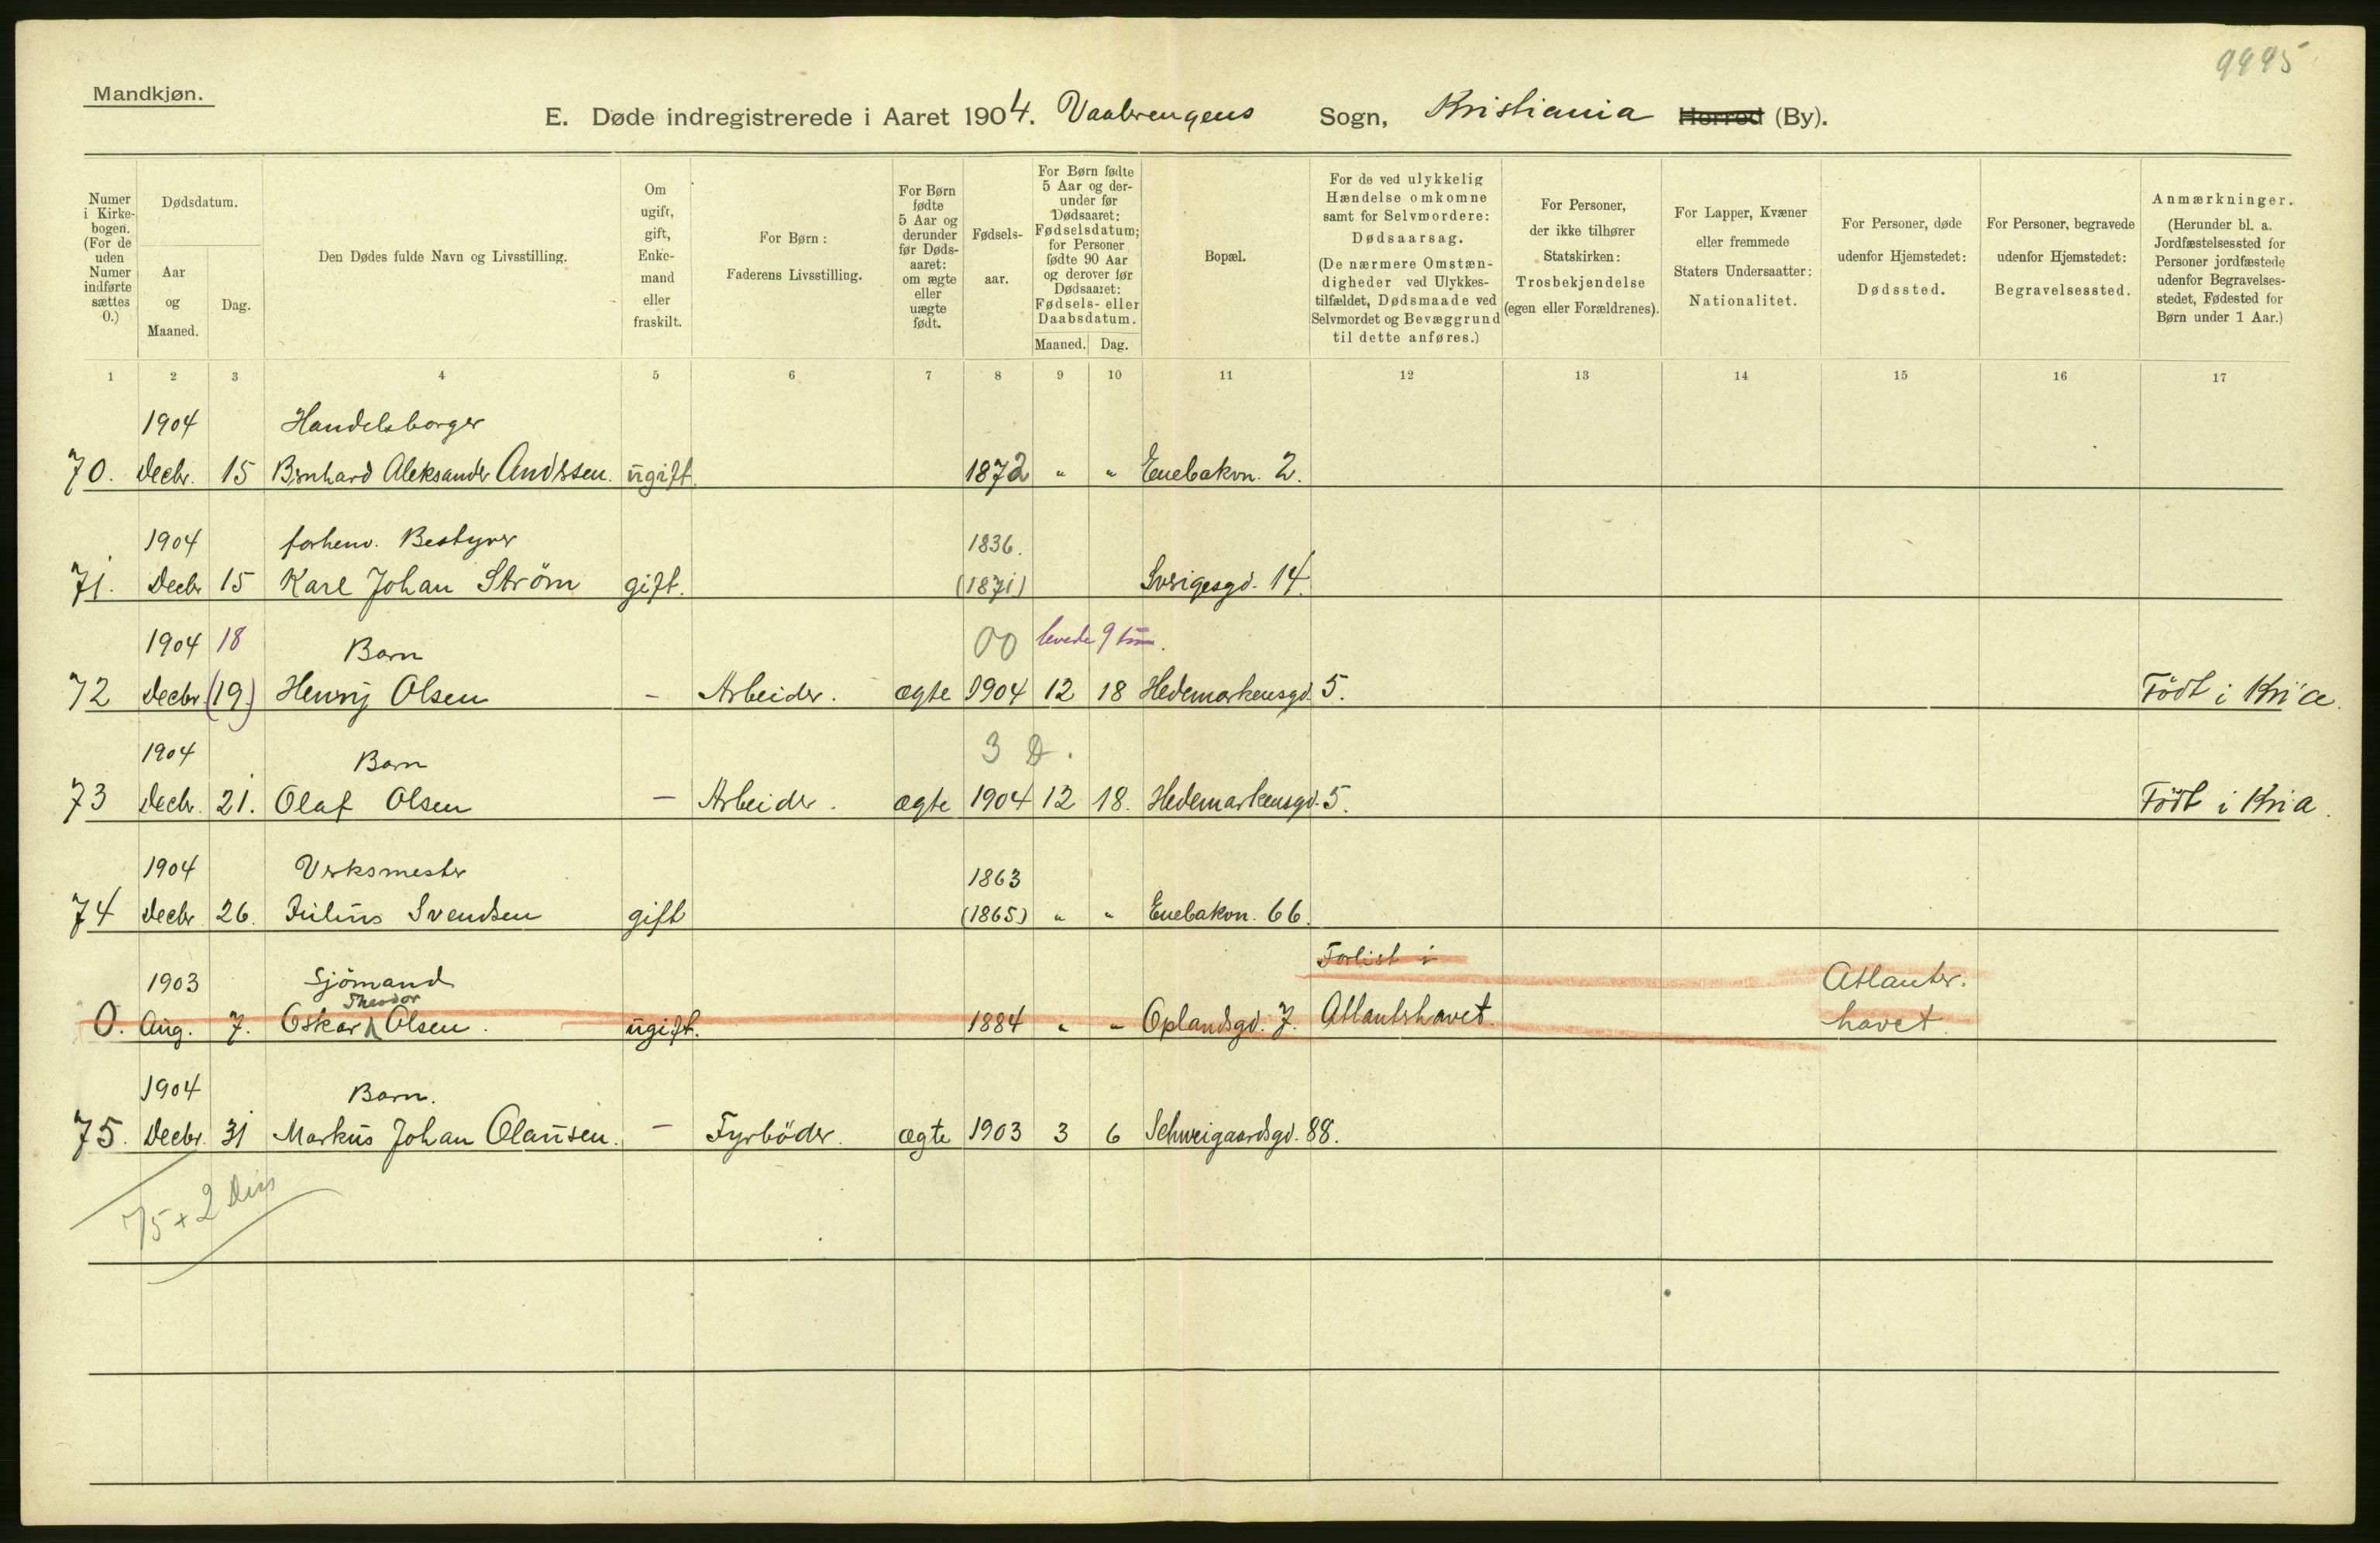 9995
Mandkjøn.
E. Døde indregistrerede i Aaret 1904. Vaalerengens Sogn, Kristiania Herred (By).
Numer i Kirkebogen. (For de uden Numer indførte sættes 0.)
Dødsdatum.
Aar og Maaned.
Dag.
Den Dødes fulde Navn og Livsstilling.
Om ugift, gift, Enkemand eller fraskilt.
For Børn: Faderens Livsstilling.
For Børn fødte 5 Aar og derunder før Dødsaaret: om ægte eller uægte født.
Fødselsaar.
For Børn fødte 5 Aar og derunder før Dødsaaret: Fødselsdatum; for Personer fødte 90 Aar og derover før Dødsaaret: Fødsels- eller Daabsdatum.
Maaned. Dag.
Bopæl.
For de ved ulykkelig Hændelse omkomne samt for Selvmordere: Dødsaarsag. (De nærmere Omstændigheder ved Ulykkestilfældet, Dødsmaade ved Selvmordet og Bevæggrund til dette anføres.)
For Personer, der ikke tilhører Statskirken: Trosbekjendelse (egen eller Forældrenes).
For Lapper, Kvæner eller fremmede Staters Undersaatter: Nationalitet.
For Personer, døde udenfor Hjemstedet: Dødssted.
For Personer, begravede udenfor Hjemstedet: Begravelsessted.
Anmærkninger. (Herunder bl. a. Jordfæstelsessted for Personer jordfæstede udenfor Begravelsesstedet, Fødested for Børn under 1 Aar.)
1 2 3 4 5 6 7 8 9 10 11 12 13 14 15 16 17
1904 Handelsborger
70. Decbr. 15 Bernhard Aleksander Andersen. ugift. 1872 " " Enebakvn. 2.
1904 forhenv. Bestyrer 1836.
71. Decbr 15 Karl Johan Ström gift. (1871) Sverigesgd. 14.
1904 18 Barn 00 levede 9 tim.
72 Decbr (19.) Henry Olsen - Arbeider. ægte 1904 12 18 Hedemarkensgd. 5. Födt i Kria.
1904 Barn 3 D.
73 Decbr. 21. Olaf Olsen - Arbeider. ægte 1904 12 18. Hedemarkensgd. 5. Födt i Kria.
1904 Verksmester 1863
74 Decbr 26. Julius Svendsen gift (1865) " " Enebakvn. 66.
1903 Sjömand Forlist i Atlanter.
Theodor
0. Aug. 7. Oskar Olsen. ugift. 1884 " " Oplandsgd. 7. Atlanterhavet. havet.
1904 Barn.
75. Decbr. 31 Markus Johan Olausen. - Fyrböder. ægte 1903 3 6 Schweigaardsgd. 88.
75 + 2